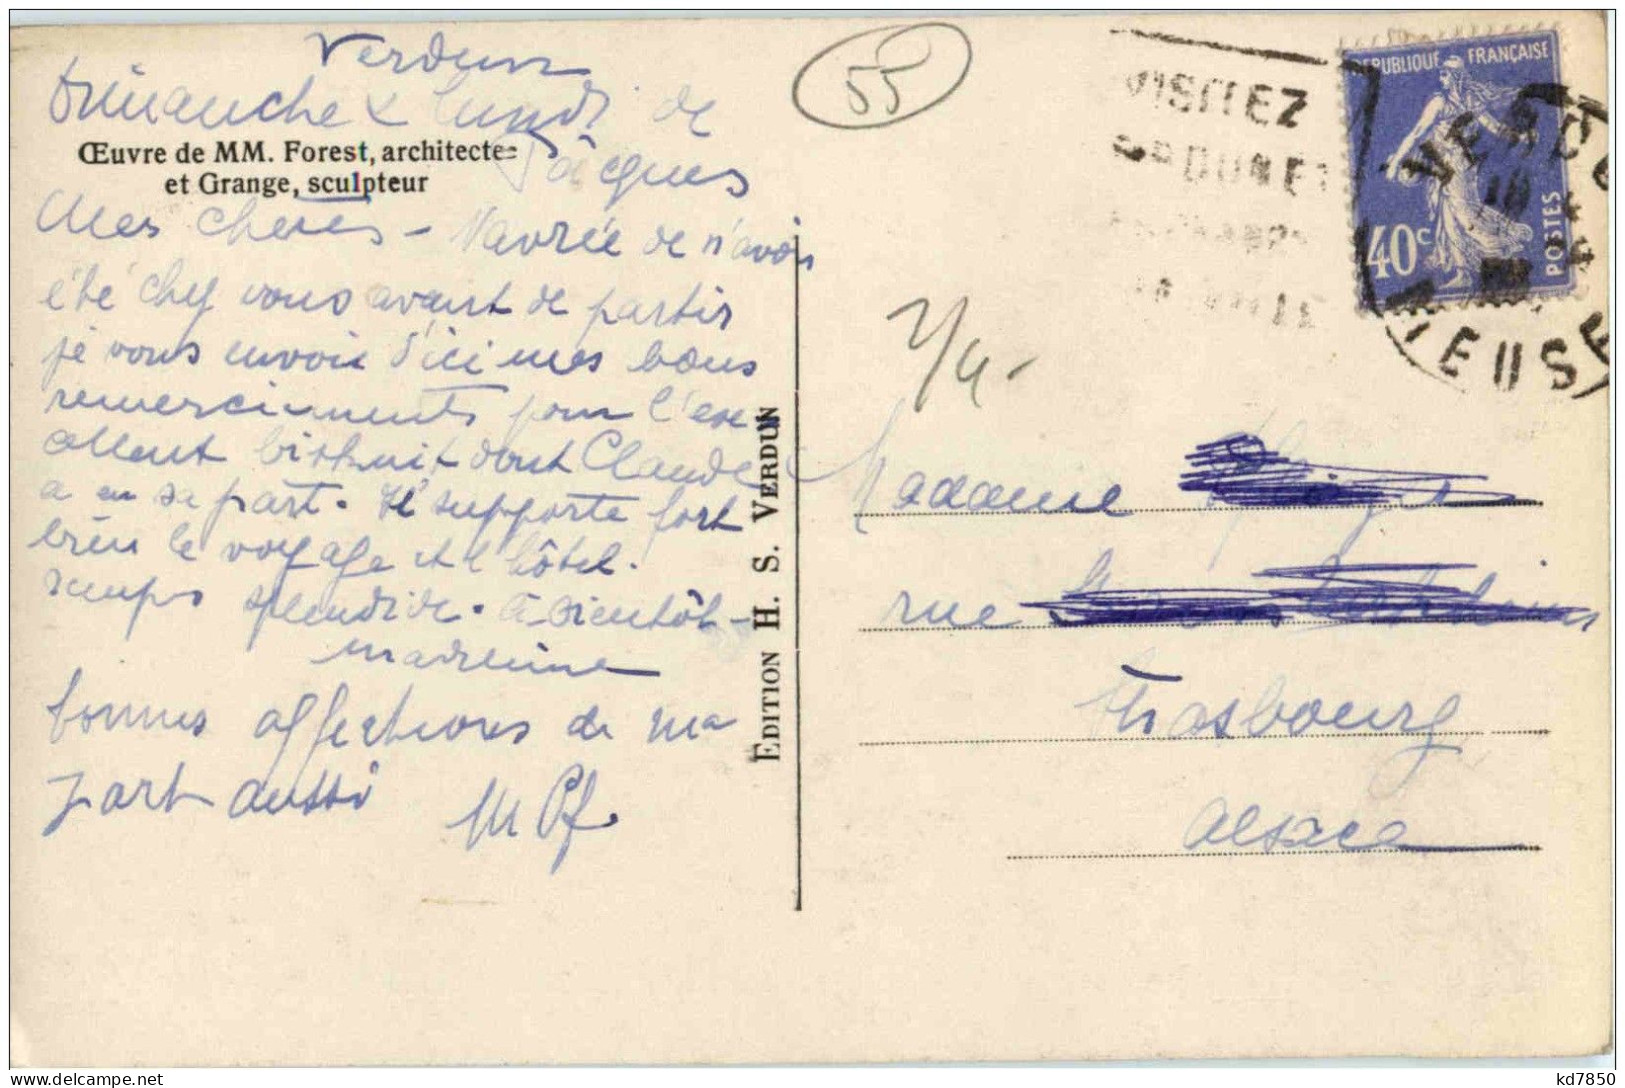 Verdun
dimanche & lundi de
Pâques
Œuvre de MM. Forest, architecte
et Grange, sculpteur
Mes chères - Navrée de n'avoir
été chez vous avant de partir
je vous envoie d'ici mes bons
remerciements pour l'exc
ellent biskuit dont Claude
a eu sa part. Il supporte fort
bien le voyage et l'hôtel.
Temps splendide. à bientôt -
Madeleine
bonnes affections de ma
part aussi
EDITION H. S. VERDUN
55
VISITEZ
REPUBLIQUE FRANÇAISE
40c
POSTES
VERDUN
MEUSE
Madame
rue
Strasbourg
Alsace
kd7850